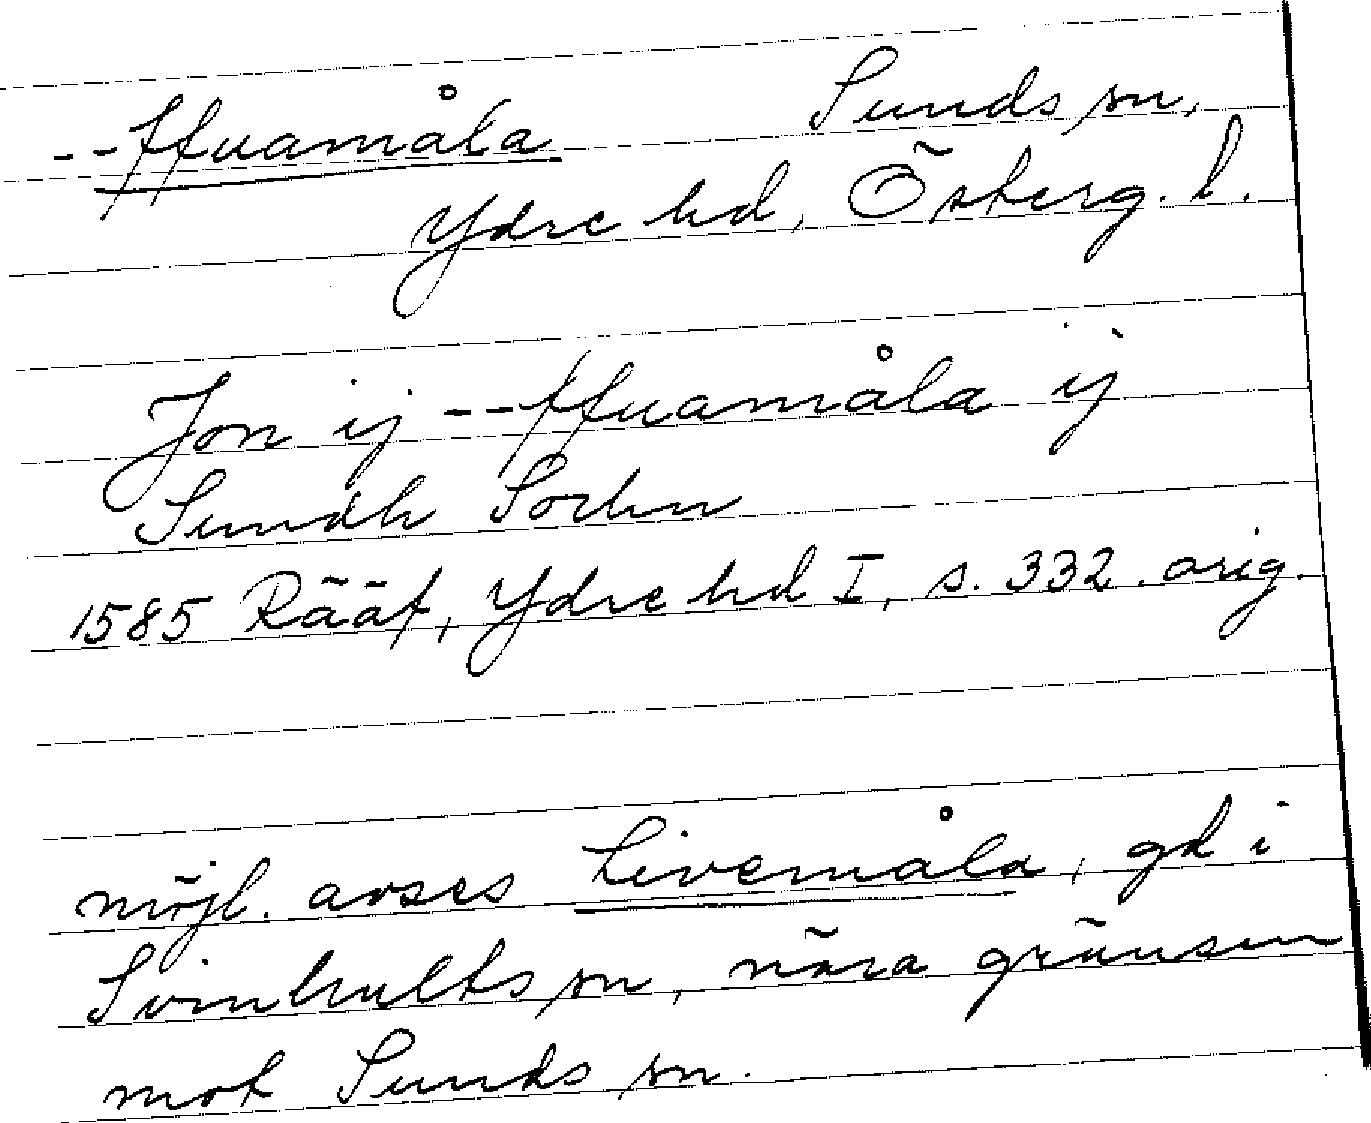 --ffuamåla Sunds sn,
Ydre hd, Österg. l.
Jon ij --ffuamåla ij
Sundh Sochn
1585 Räät, Ydre hd I, s. 332. orig.
möjl. avses Livemåla, gd i
Svinhults sn, nära gränsen
mot Sunds sn.